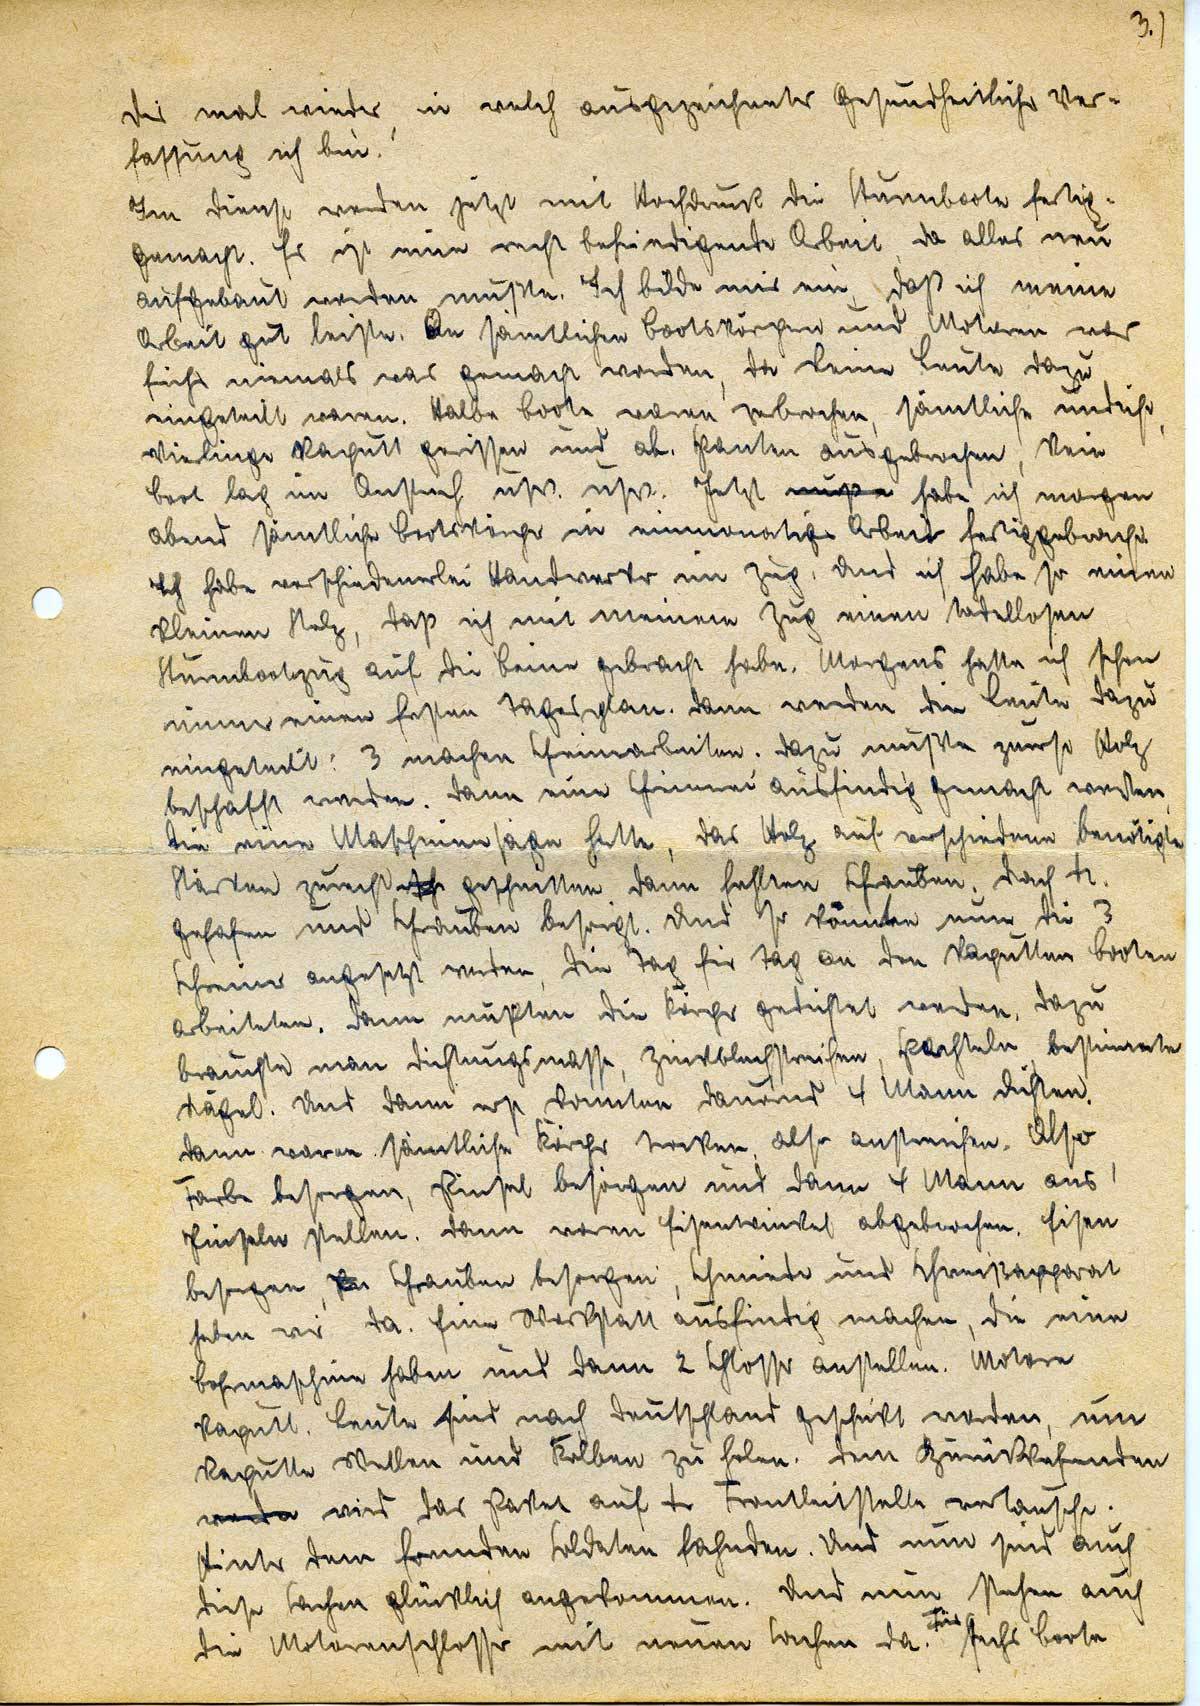 3.)
dir mal wieder, in welch ausgezeichneter gesundheitlicher Ver-
fassung ich bin.
Im Dienst werden jetzt mit Hochdruck die Sturmboote fertig-
gemacht. Es ist eine recht befriedigende Arbeit, da alles neu
aufgebaut werden mußte. Ich bilde mir ein, daß ich meine
Arbeit gut leiste. An sämtlichen Bootskörpern und Motoren war
früher niemals was gemacht worden, da keine Leute dazu
eingeteilt waren. Halbe Boote waren zerbrochen, sämtliche undicht,
kaputt gerissen und ab. Planken ausgebrochen, kein
Boot lag im Anstrich usw. usw. Jetzt habe ich morgen
abend sämtliche Bootskörper in einmonatiger Arbeit fertiggebracht.
Ich habe verschiedenerlei Handwerker im Zug. Und ich habe so einen
kleinen Stolz, daß ich mit meinem Zug einen tadellosen
Sturmbootzug auf die Beine gebracht habe. Morgens hatte ich schon
immer einen festen Tagesplan. Dann werden die Leute dazu
eingeteilt: 3 machen Schreinarbeiten. Dazu mußte zuerst Holz
beschafft werden. Dann eine Schreinerei ausfindig gemacht werden,
die eine Maschinensäge hatte, das Holz auf verschiedene benötigte
Stärken zurecht geschnitten dann fehlten Schrauben. Nach
gefahren und Schrauben besorgt. Und so konnten nun die 3
Schreiner angesetzt werden, die Tag für Tag an den kaputten Booten
arbeiteten. Dann mußten die Körper gedichtet werden, dazu
brauchte man Dichtungsmasse, Zinkblechstreifen, Spachteln, bestimmte
Nägel. Und dann erst konnten dauernd 4 Mann dichten.
Dann waren sämtliche Körper trocken, also anstreichen. Also
Farbe besorgen, Pinsel besorgen und dann 4 Mann ans
Pinseln stellen. Dann waren Eisenwinkel abgebrochen. Eisen
besorgen, Schrauben besorgen, Schmiede und Schweißapparat
haben wir da. Eine Werkstatt ausfindig machen, die eine
Bohrmaschine haben und dann 2 Schlosser anstellen. Motore
kaputt. Leute sind nach Deutschland geschickt worden, um
kaputte Wellen und Kolben zu holen. Dem Zurückkehrenden
wird das Paket auf der Frontleitstelle vertauscht.
Hinter dem fremden Soldaten fahnden. Und nun sind auch
diese Sachen glücklich angekommen. Und nun stehen auch
die Motorenschlosser mit neuen Sachen da. Für sechs Boote